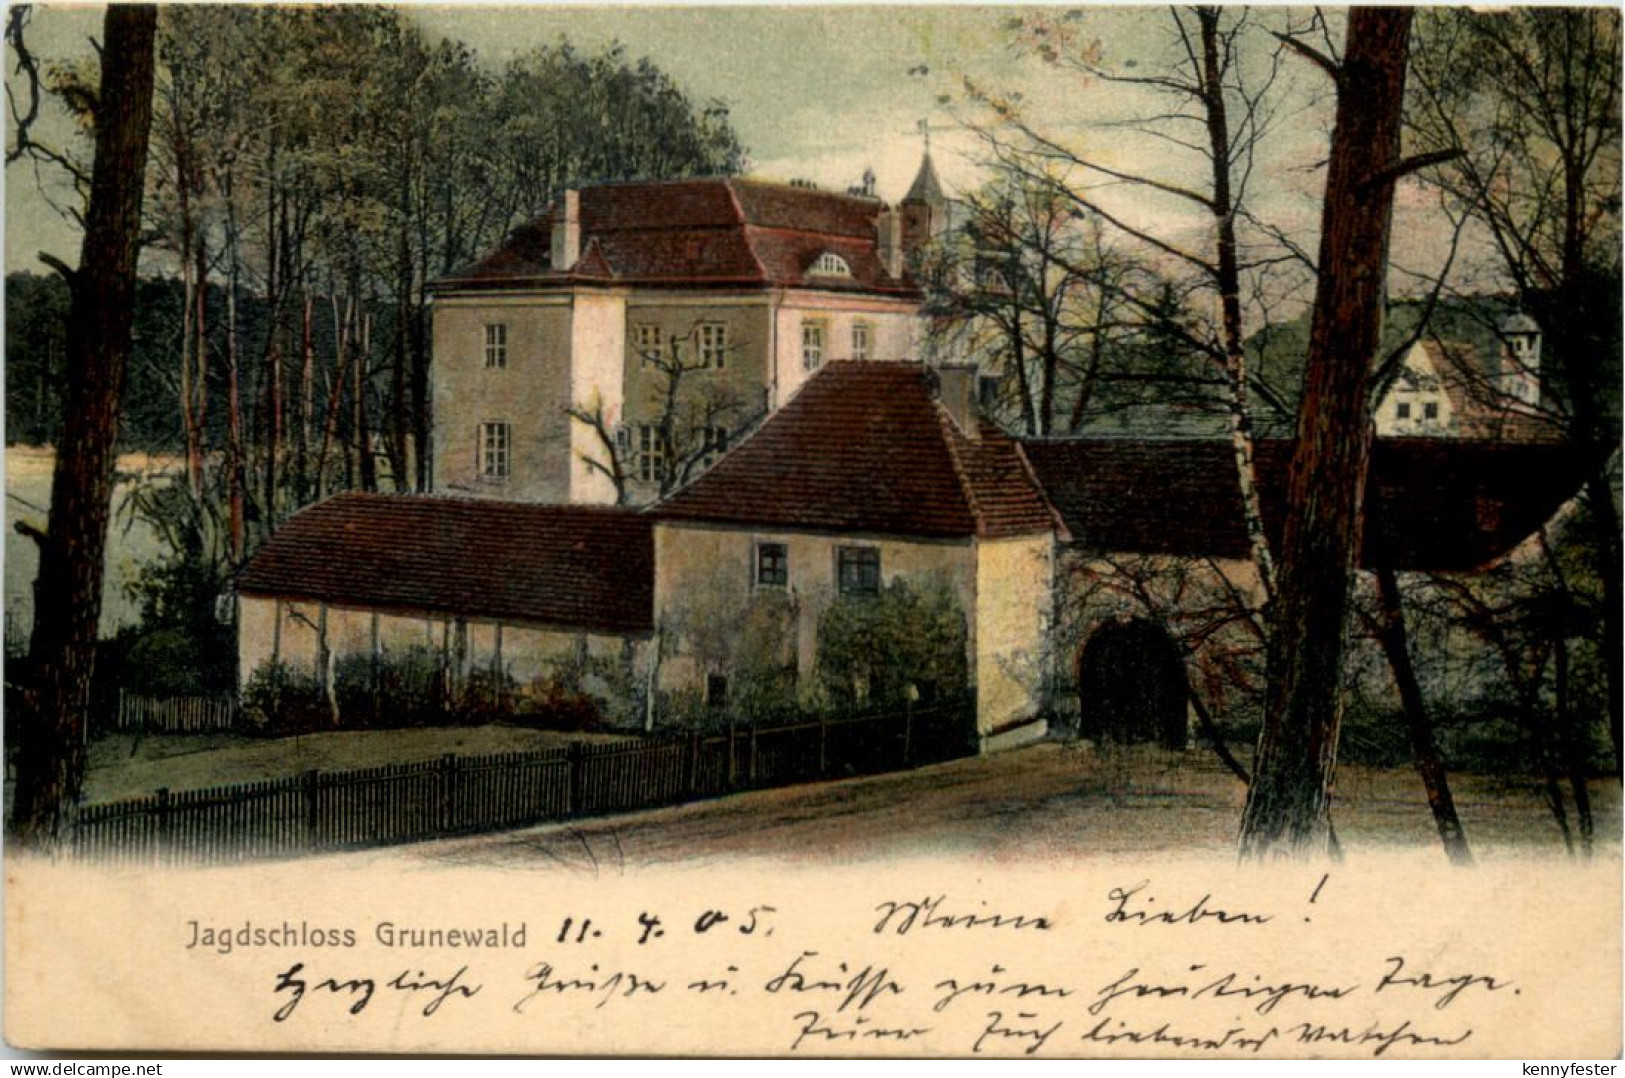 Jagdschloss Grunewald 11. 4. 05. Meine Lieben!
Herzliche Grüße u. Küsse zum heutigen Tage.
Euch liebendes
www.delcampe.net
kennyfester